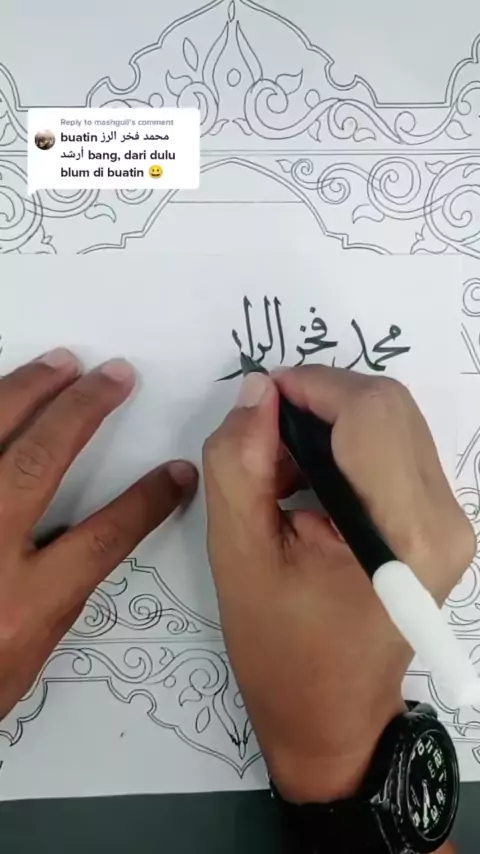 Reply to mashguli's comment
buatin محمد فخر الرز
أرشد bang, dari dulu
blum di buatin 😀
محمد فخر الرار